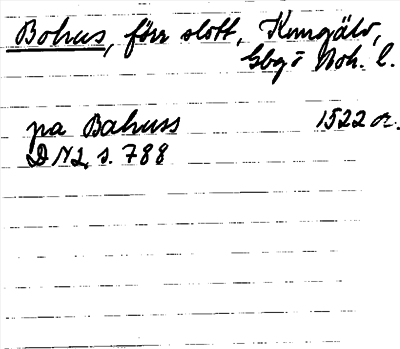 Bohus, förr slott, Kungälv,
Gbg o Boh. l.
pa Bahuss 1522 or.
DN 2, s. 788